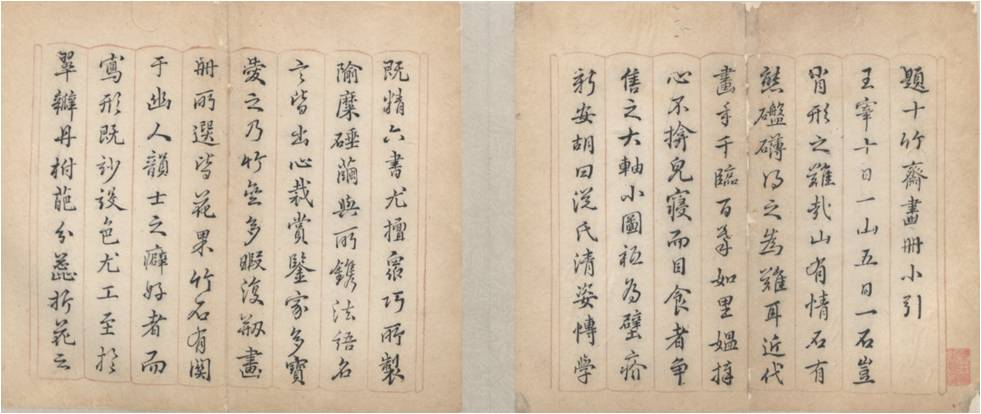 題十竹齋畫冊小引
王宰十日一山五日一石豈
肖形之難哉山有情石有
態礴得之為難耳近代
畫手千臨百摹如里媼捧
心不揜皃寢而目食者爭
售之大軸小圖秪為壁疥
新安胡曰從氏清姿愽學
既精六書尤擅衆巧所製
隃糜硾繭與所鐫法語名
言皆出心裁賞鑒家多寶
愛之乃竹多暇復剏畫
冊所選皆花果竹石有関
于幽人韻士之癖好者而
寫形既妙設色尤工至於
翠瓣丹柎葩分蕊析花之